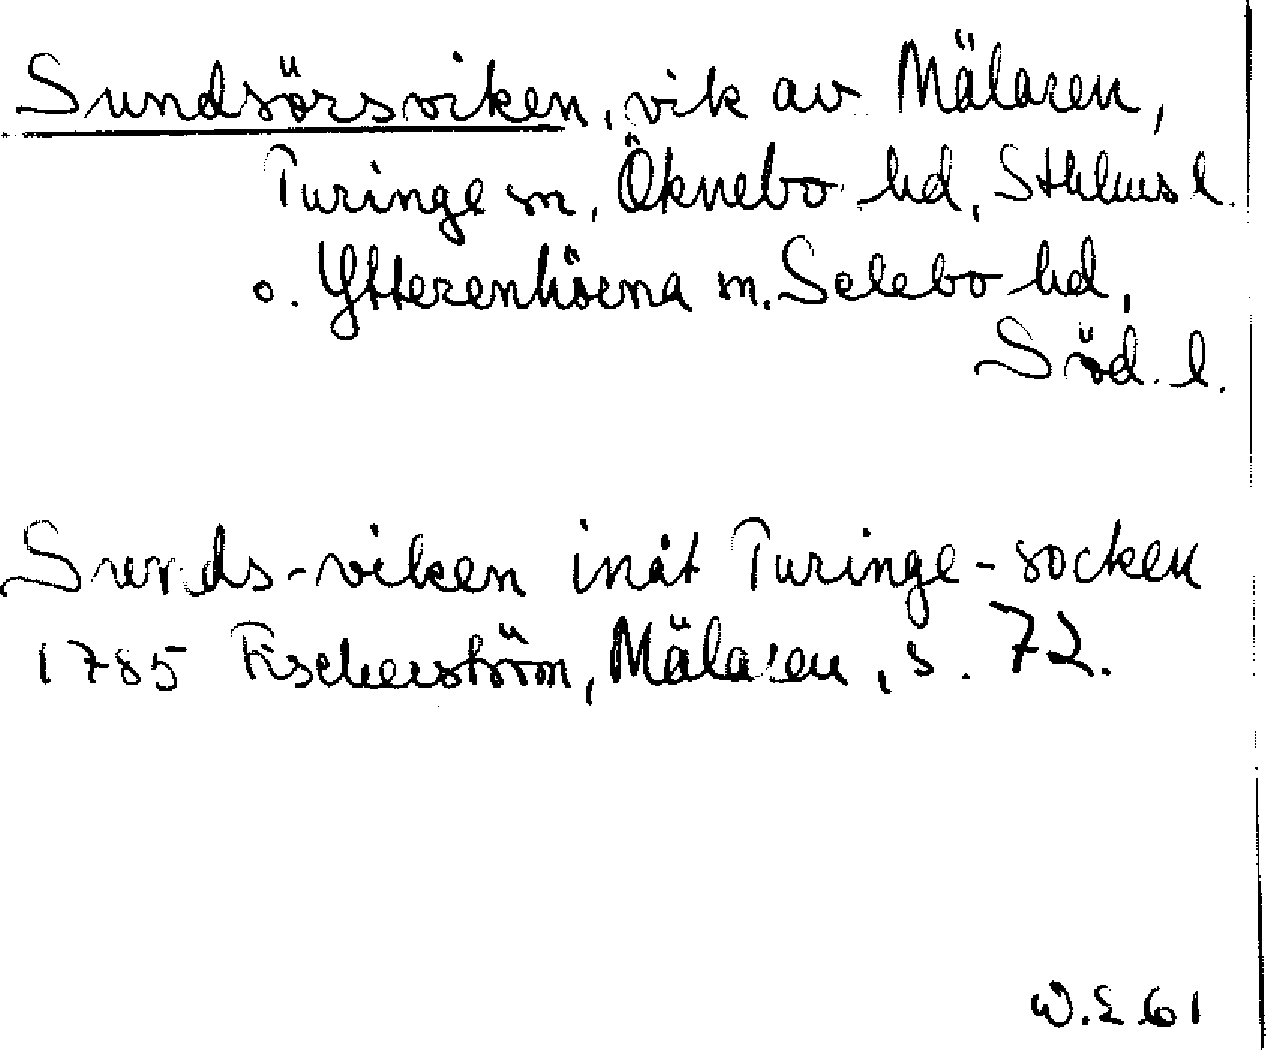 Sundsörsviken, vik av Mälaren,
Turinge sn, Öknebo hd, Sthlms l.
o. Ytterenhörna sn. Selebo hd,
Söd. l.
Sunds-viken inåt Turinge-socken
1785 Fischerström, Mälaren, s. 72.
W.E 61